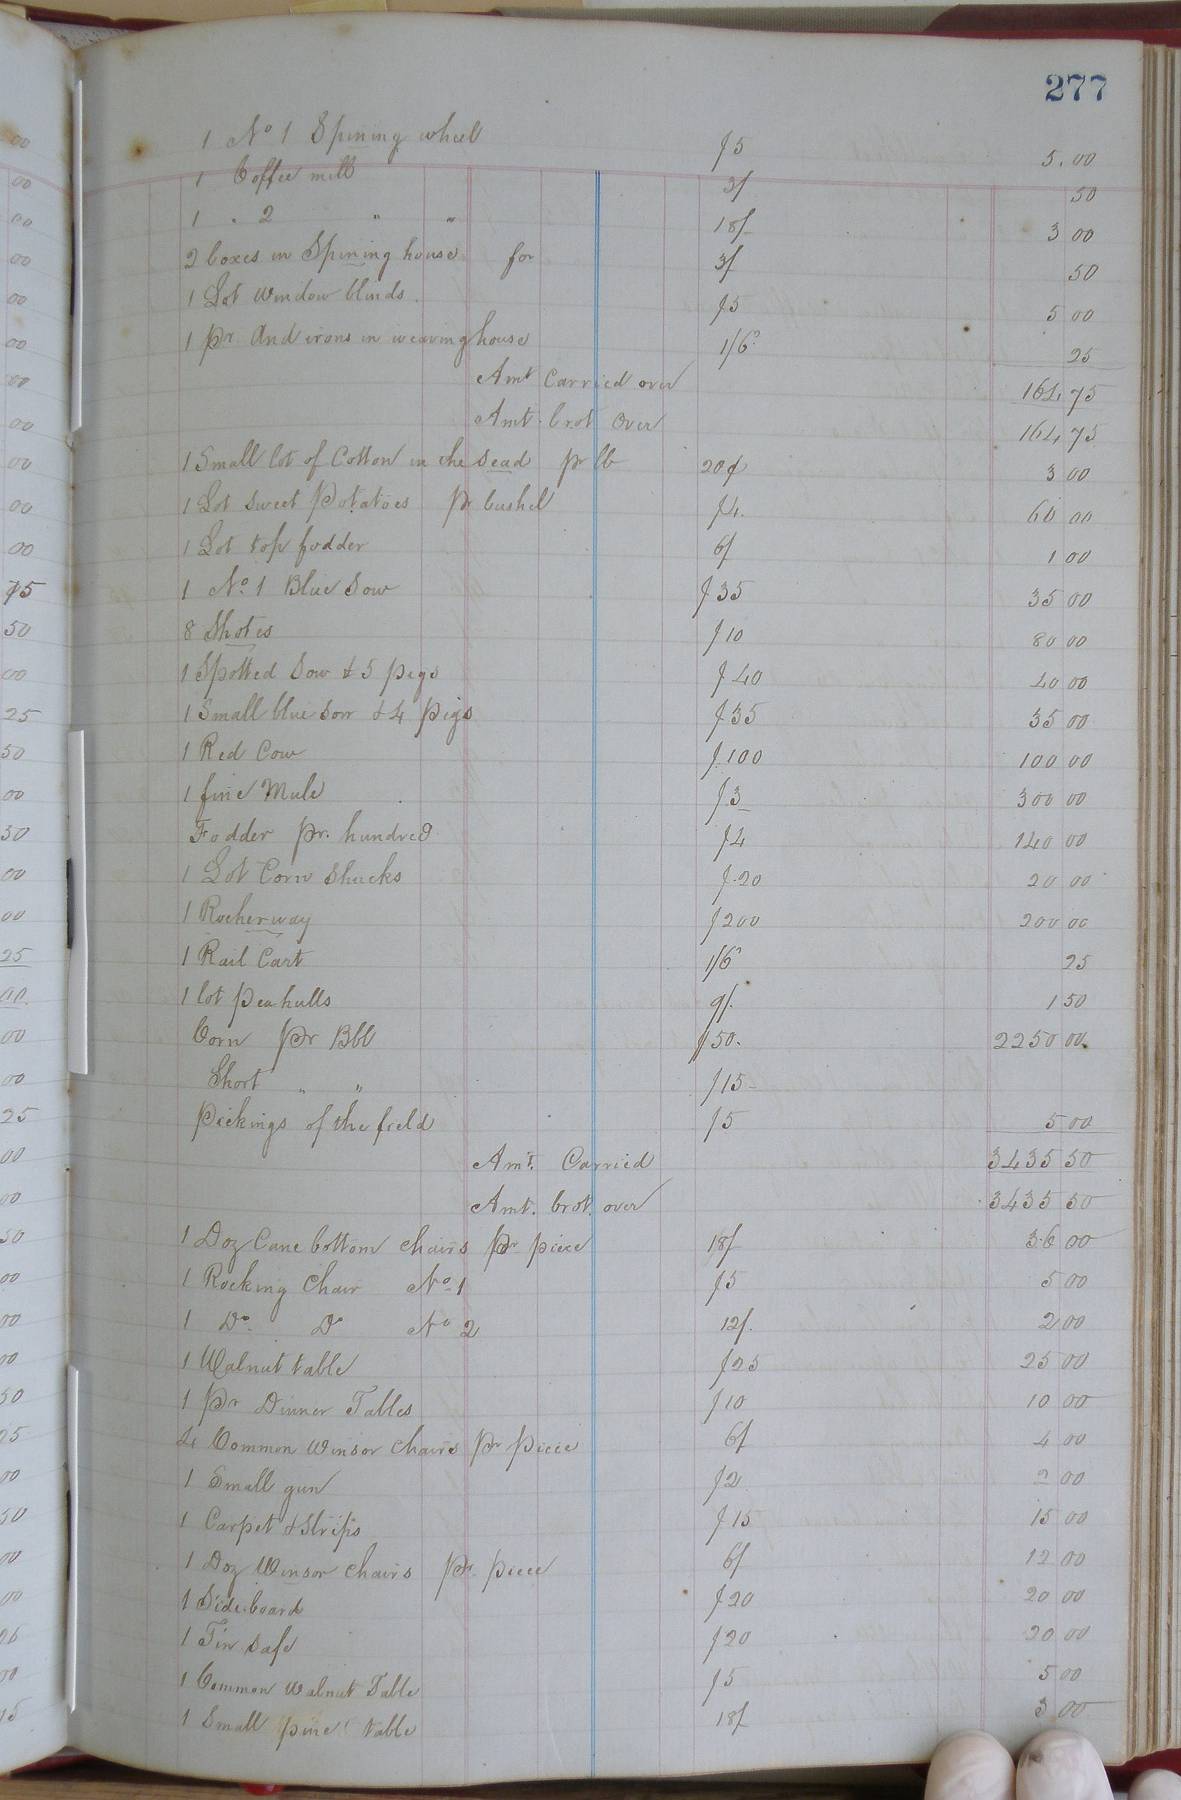 277
1 No 1 Spining wheel $5 5.00
1 Coffee mill 3/ 50
1 " 2 " " 18/ 3 00
2 boxes in Spining house for 3/ 50
1 Lot window blinds $5 5 00
1 pr And irons in weaving house 1/6 25
Amt Carried over 164 75
Amt. brot Over 164 75
1 Small lot of Cotton in the Sead pr lb 20¢ 3 00
1 Lot Sweet Potatoes Pr bushel $4. 60 00
1 Lot top fodder 6/ 1 00
1 No. 1 Blue Sow $35 35 00
8 Shotes $10 80 00
1 Spotted Sow & 5 pigs $40 40 00
1 Small blue sow & 4 pigs $35 35 00
1 Red Cow $100 100 00
1 fine Mule $3 300 00
Fodder pr. hundred $4 140 00
1 Lot Corn Shucks $20 20 00
1 Rocherway $200 200 00
1 Rail Cart 1/6 25
1 lot pea hulls 9/. 1 50
Corn pr Bbl $50. 2250 00
Short " " $15
Pickings of the field $5 5 00
Amt. Carried 3435 50
Amt. brot. over 3435 50
1 Doz Cane bottom chairs pr piece 18/ 36 00
1 Rocking Chair No 1 $5 5 00
1 Do. Do No 2 12/. 2 00
1 Walnut table $25 25 00
1 Pr Dinner Tables $10 10 00
4 Common Winsor chairs Pr piece 6/ 4 00
1 Small gun $2 2 00
1 Carpet & Strips $15 15 00
1 Doz Winsor chairs Pr. piece 6/ 12 00
1 Side board $20 20 00
1 Tin Safe $20 20 00
1 Common Walnut Table $5 5 00
1 Small pine table 18/ 3 00